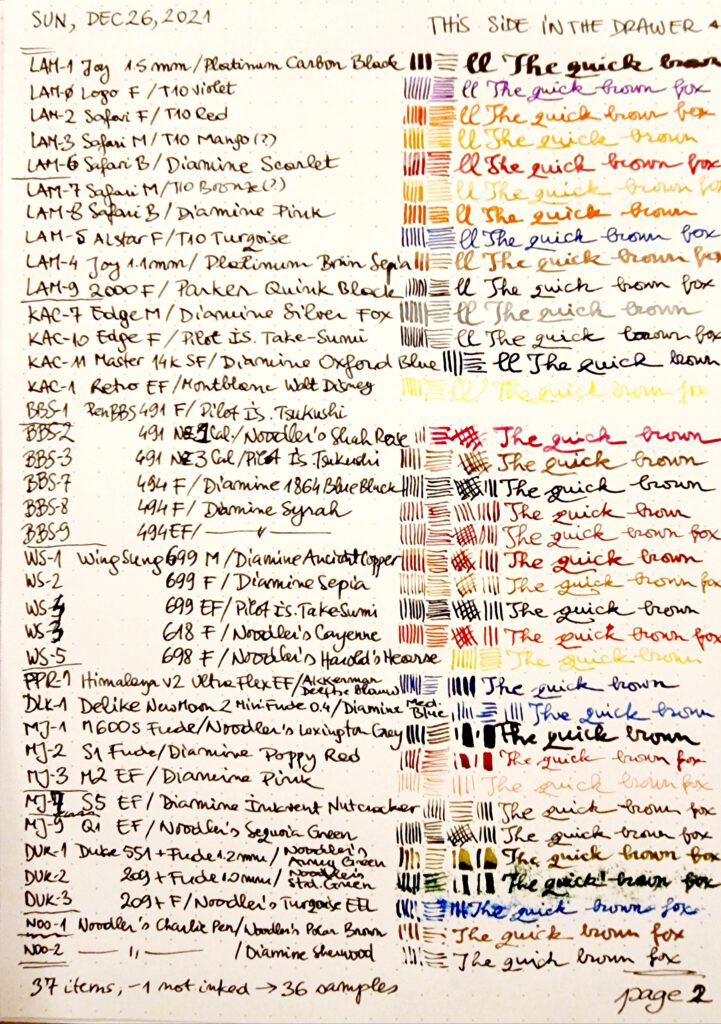 SUN, DEC 26, 2021
THIS SIDE IN THE DRAWER
LAM-1 Joy 1.5mm/Platinum Carbon Black ll The quick brown
LAM-0 Logo F /T10 Violet ll The quick brown fox
LAM-2 Safari F/T10 Red ll The quick brown fox
LAM-3 Safari M/T10 Mango(?) ll The quick brown fox
LAM-6 Safari B/Diamine Scarlet ll The quick brown fox
LAM-7 Safari M/T10 Bronze(?) ll The quick brown fox
LAM-8 Safari B/Diamine Pink ll The quick brown fox
LAM-5 Alstar F/T10 Turqoise ll The quick brown fox
LAM-4 Joy 1.1mm/Platinum Brun Sepia ll The quick brown fox
LAM-9 2000 F/Parker Quink Black ll The quick brown fox
KAC-7 Edge M/Diamine Silver Fox ll The quick brown fox
KAC-10 Edge F/Pilot IS. Take-Sumi ll The quick brown fox
KAC-11 Master 14k SF/Diamine Oxford Blue ll The quick brown
KAC-1 Retro EF/Montblanc Walt Disney ll The quick brown fox
BBS-1 PenBBS 491 F/Pilot IS. Tsukushi
BBS-2 491 Cal./Noodler's Shah Rose The quick brown
BBS-3 491 3 Cal/Pilot IS. Tsukushi The quick brown
BBS-7 494 F/Diamine 1864 Blue Black The quick brown
BBS-8 494 F/Diamine Syrah The quick brown
BBS-9 494 EF/ —〃— The quick brown fox
WS-1 WingSung 699 M/Diamine Ancient Copper The quick brown
WS-2 699 F/Diamine Sepia The quick brown fox
WS- 699 EF/Pilot IS. TakeSumi The quick brown
WS-3 618 F/Noodler's Cayenne The quick brown fox
WS-5 698 F/Noodler's Harold's Hearse The quick brown fox
PPR-1 Himalaya V2 Ultra Flex EF/Akkerman The quick brown
DLK-1 Delike NewMoon 2 Mini Fude 0.4/Diamine Med. Blue The quick brown fox
MJ-1 M600S Fude/Noodler's Lexington Grey The quick brown
MJ-2 S1 Fude/Diamine Poppy Red The quick brown fox
MJ-3 M2 EF/Diamine Pink The quick brown fox
MJ- S5 EF/Diamine Inkvent Nutcracker The quick brown fox
MJ-5 Q1 EF/Noodler's Sequoia Green The quick brown fox
DUK-1 Duke 551+Fude 1.2mm/Noodler's Army Green The quick brown fox
DUK-2 209+Fude 1.0mm/Noodler's Green The quick brown fox
DUK-3 209+F/Noodler's Turqoise EEL The quick brown fox
NOO-1 Noodler's Charlie Pen/Noodler's Polar Brown The quick brown fox
NOO-2 —〃— /Diamine Sherwood The quick brown fox
37 items, -1 not inked → 36 samples
page 2